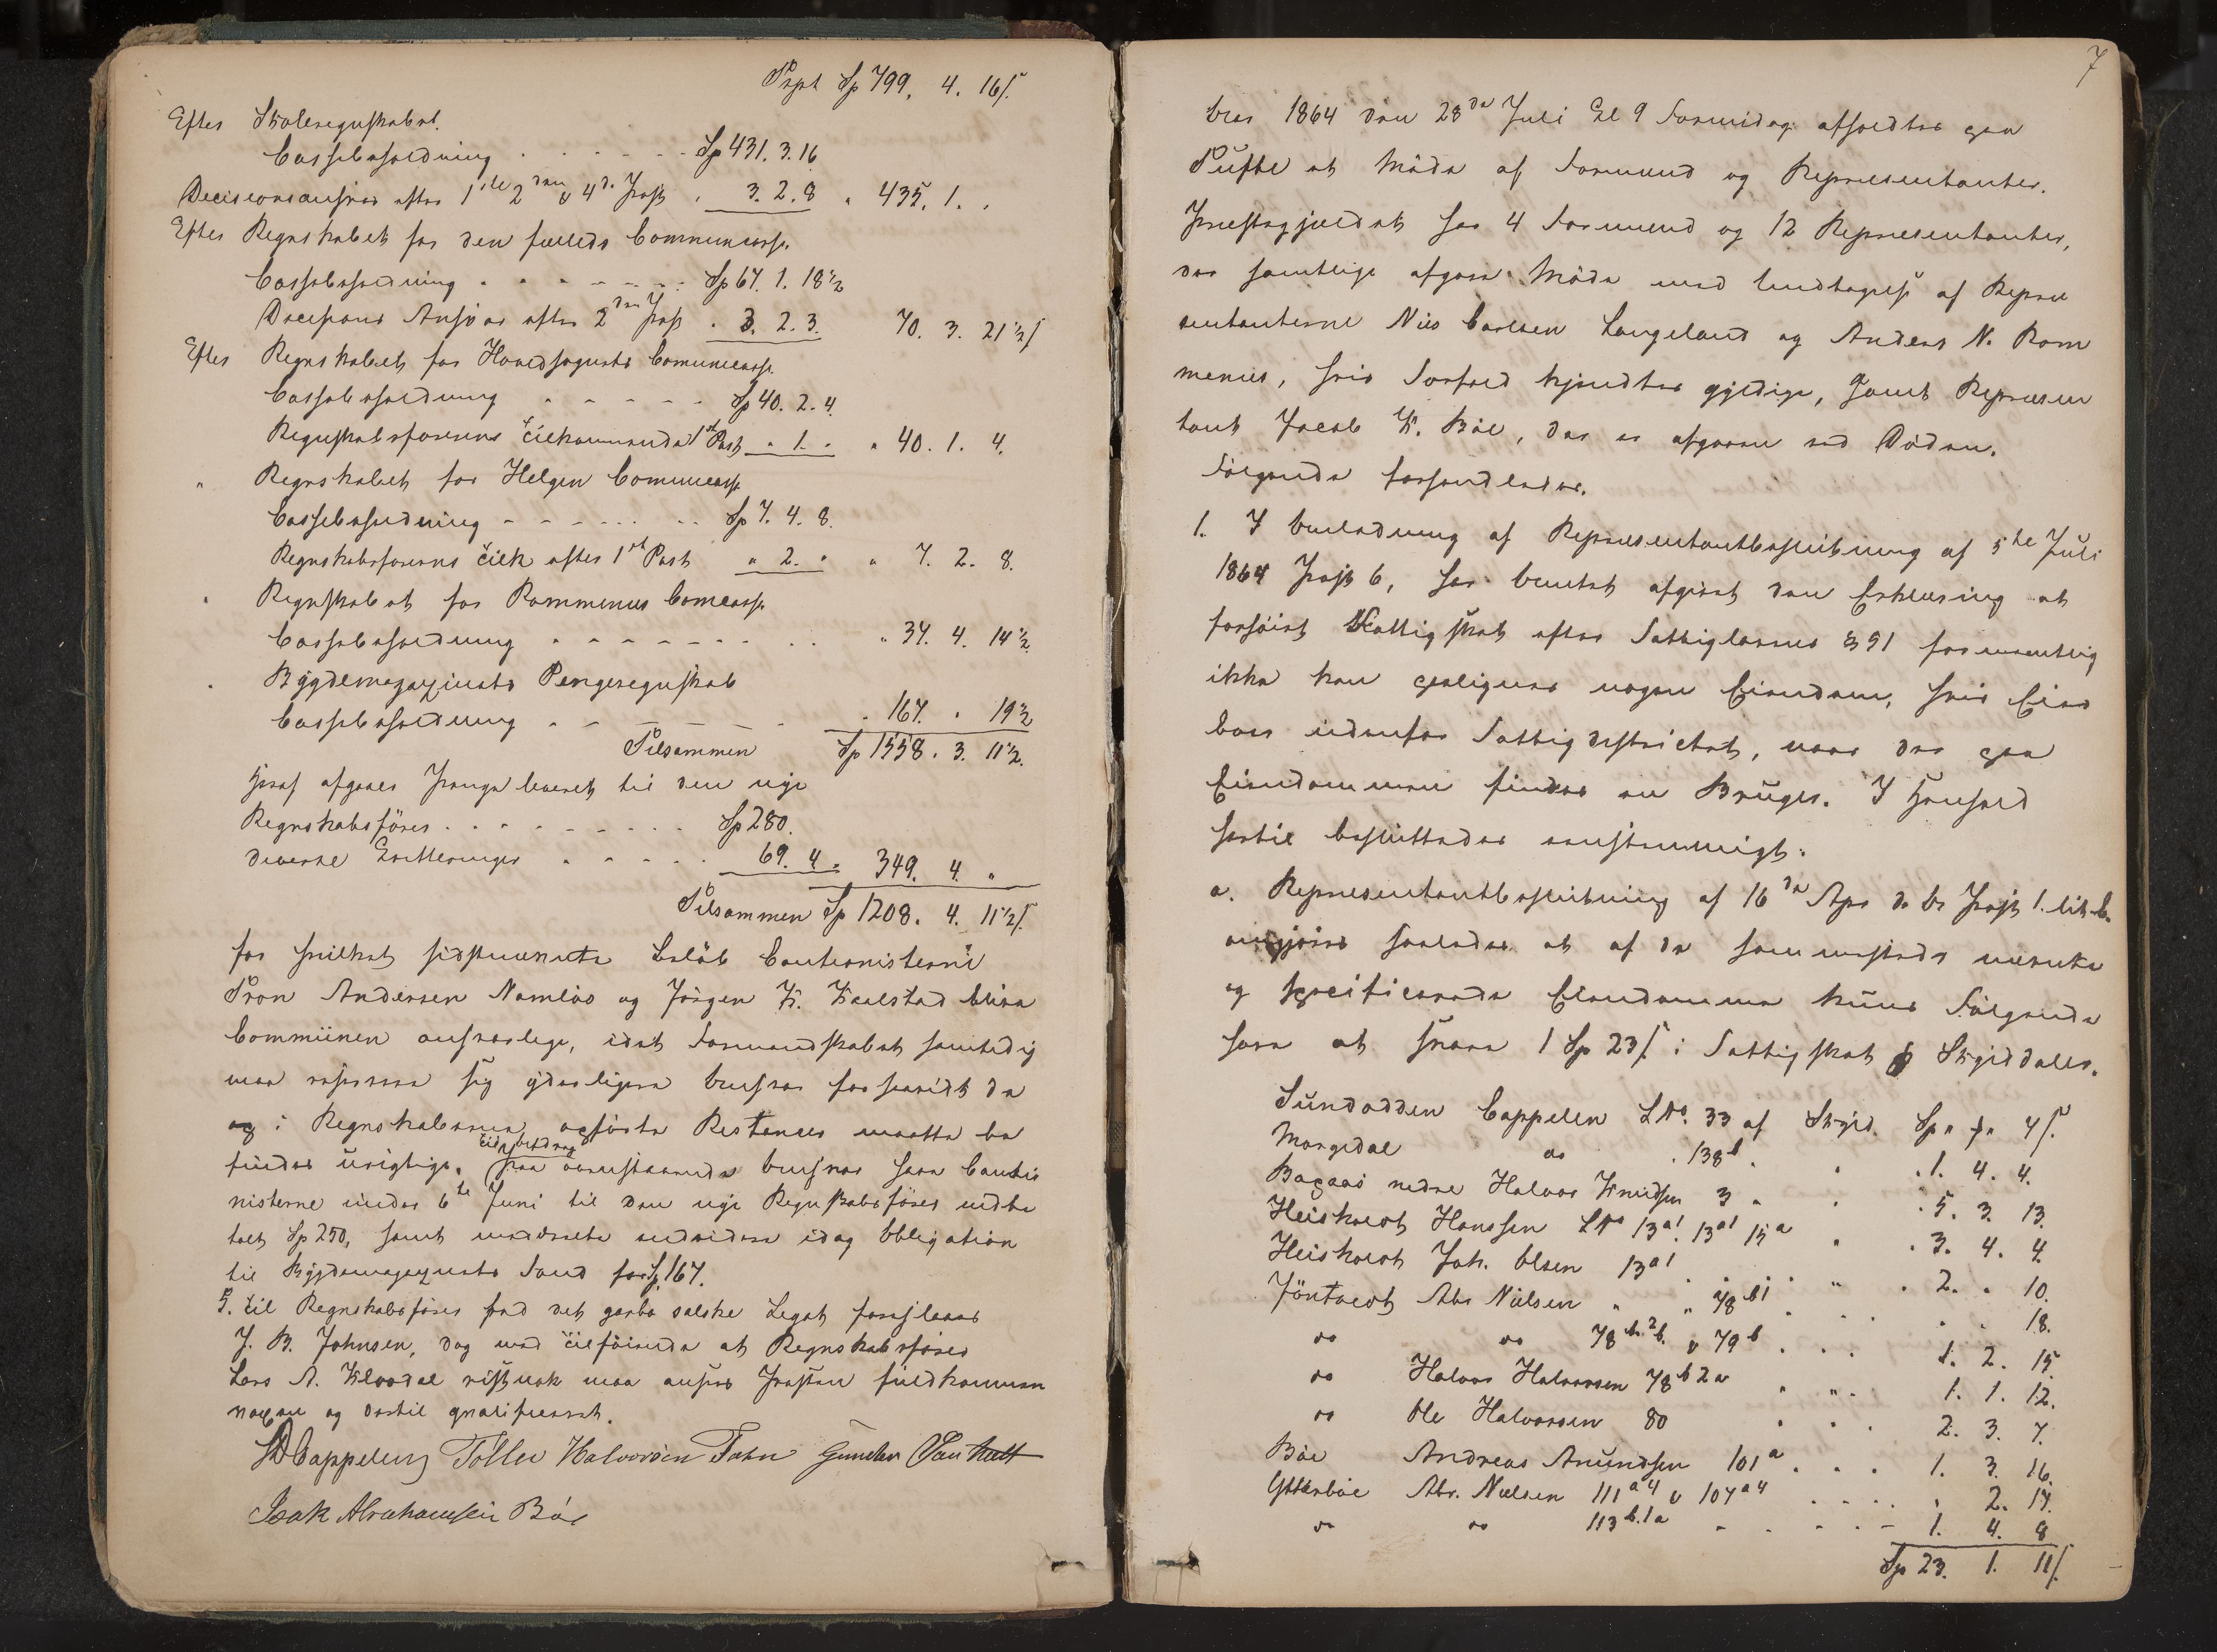 Trpt Sp 799. 4. 16 ſ.
Efter Skoleregnskabet.
Cassebeholdning - - - - - Sp 431. 3. 16
Decisionsansvar efter 1ste 2den & 4de Post . 3. 2. 8 " 435. 1. "
Efter Regnskabet for den fælleds Communecasse
Cassebeholdning - - - - - Sp 67. 1. 18½
Decisions Ansvar efter 2den Post . 3. 2. 3. 70. 3. 21½ ſ
Efter Regnskabet for Hovedsognets Comunecasse
Cassebeholdning - - - - - Sp 40. 2. 4.
Regnskabsførerens tilkommende 1st Post " 1. " " 40. 1. 4.
" Regnskabet for Helgen Comunecasse
Cassebeholdning - - - - - Sp 7. 4. 8.
Regnskabsførerens tilk efter 1st Post " 2. " " 7. 2. 8.
" Regnskabet for Rommenes Comcasse
Cassebeholdning - - - - - " 37. 4. 14½
" Bygdemagazinets Pengeregnskab
Cassebeholdning - - - - - " 167. " 19½
Tilsammen Sp 1558. 3. 11½.
Heraf afgaaer Penge leveret til den nye
Regnskabsfører - - - - - Sp 280.
diverse Qvitteringer - - - - 69. 4 " 349. 4. "
Tilsammen Sp 1208. 4. 11½ ſ.
for hvilket sidstnævnte Beløb Cautionisterne
Tron Andersen Namløs og Jørgen K. Kaalstad blive
Communen ansvarlige, idet Formandskabet samtidig
maa reservere sig yderligere Ansvar forsaavidt de
og i Regnskaberne opførte Restancer maatte be
findes urigtige. til bedrag
Paa ovenstaaende Ansvar have Cautio
nisterne under 6te Juni til den nye Regnskabsfører indbe
talt Sp 250, samt
idag Obligation
til Bygdemagazinets Fond for Sp 167.
5. Til Regnskabsfører ved det
Legat foreslaaes
J. B. Johnsen, dog med tilføiende at Regnskabsfører
Lars A. Klovdal vistnok maa ansees Posten fuldkommen
voxen og dertil qvalificeret.
D Cappelen Tollev Halvorsen Fahn Gunder
Isak Abrahamsen Bøe
7
Aar 1864 den 28de Juli Kl 9 Formidag afholdtes paa
Tufte et Møde af Formænd og Repræsentanter.
Præstegjeldet har 4 Formænd og 12 Repræsentanter,
der samtlige afgave Møde med Undtagelse af Repræ
sentanterne Nils Carlsen Langeland og Anders N. Rom
menes, hvis Forfald kjendtes gyldige, samt Repræsen
tant Jacob K. Bøe, der er afgaaen ved Døden.
Følgende forhandledes.
1. I Anledning af Repræsentantbeslutning af 5te Juli
1864 Post 6, har Amtet afgivet den Erklæring at
forhøiet Fattigskat efter Fattiglovens § 51 formentlig
ikke kan paalignes nogen Eiendom, hvis Eier
boer udenfor Fattigdistrictet, naar der paa
Eiendommen findes en Bruger. I Henhold
hertil besluttedes eenstemmigt:
a. Repræsentantbeslutning af 16de Apr d. A. Post 1. lit b.
omgjøres saaledes at af de sammesteds nævnte
og specificerede Eiendomme kuns Følgende
have at svare 1 Sp 23 ſ. i Fattigskat pr Skylddaler.
Sundodden Cappelen LNo. 33 af Skyld Sp " " 4 ſ.
Morgedal do . 138 b . " . 1. 4. 4.
Bagaas nedre Halvor Knudsen 3 " " . 5. 3. 13.
Heisholt Hans Hanssen LNo 13 a1. 13 a1 15 a " . 3. 4. 4.
Heisholt Joh. Olsen 13 a1 . . . " . 2. " 10.
Jøntvedt Abr Nielsen " " 78 b1 . . . . . 18.
do do 78 b.2 b. & 79 b . . . 1. 2. 15.
do Halvor Halvorsen 78 b 2 a . " . 1. 1. 12.
do Ole Halvorsen 80 . . . 2. 3. 7.
Bøe Andreas Amundsen 101 a . . . 1. 3. 16.
Ytterbøe Abr. Nielsen 111 a4 & 107 a4 . . . . . 2. 17.
do do 113 b.1 a - - - - - 1. 4. 8
Sp 23. 1. 11 ſ.